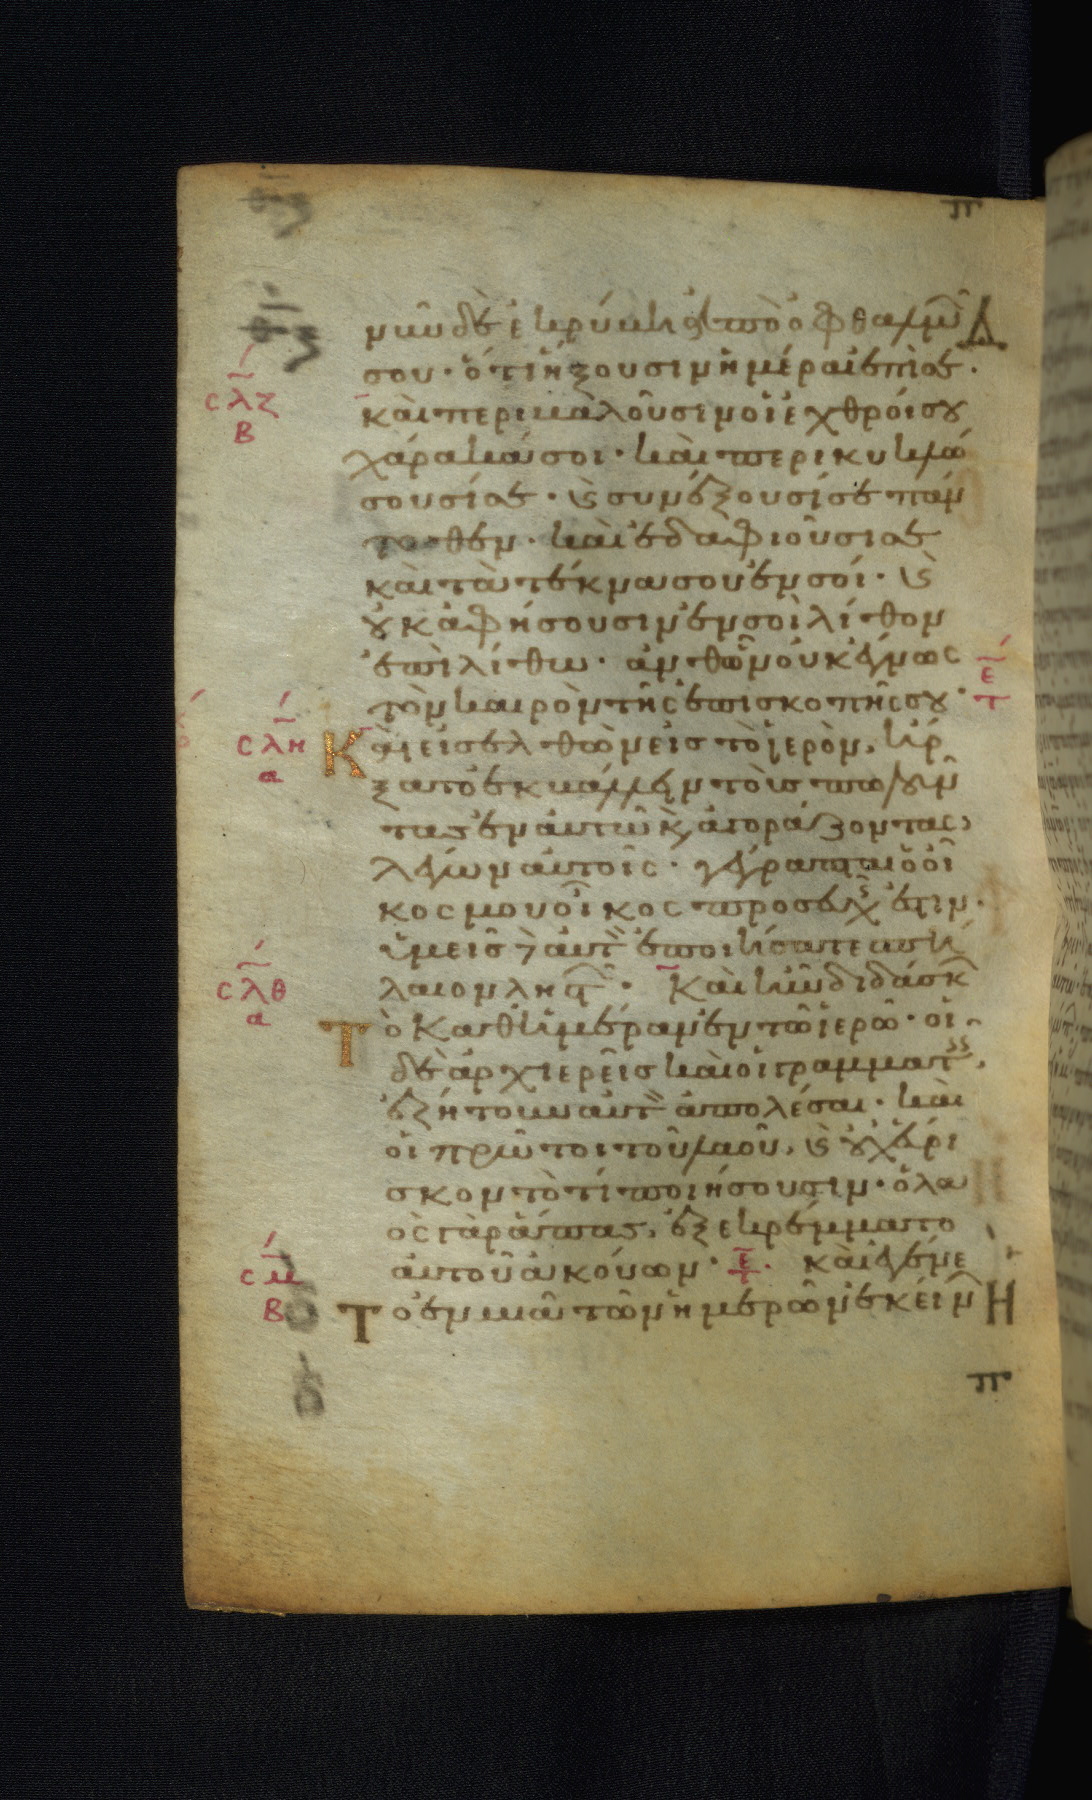 νῦν δὲ ἐκρύβη ἀπὸ ὀφθαλμῶ
σου· ὅτι ἥξουσιν ἡμέραι ἐπὶ σέ·
σλζ β καὶ περιβαλοῦσιν οἱ ἐχθροί σου
χάρακά σοι· καὶ περικυκλώ
σουσί σε· καὶ συνέξουσί σε πάν
τοθεν· καὶ ἐδαφιοῦσι σὲ
καὶ τὰ τέκνα σου ἐν σοί· καὶ
οὐκ ἀφήσουσιν ἐν σοὶ λίθον
ἐπὶ λίθω· ἀνθ᾽ ὧν οὐκ ἔγνως
τὸν καιρὸν τῆς ἐπισκοπῆς σου·
σλη α Καὶ εἰσελθὼν εἰς τὸ ἱερὸν, ἤρ
ξατο ἐκβάλλειν τοὺς πωλοῦν
τας ἐν αὐτῶ καὶ ἀγοράζοντας,
λέγων αὐτοῖς· γέγραπται ὁ οἶ
κός μου οἶκος προσευχῆς ἐστιν·
ὑμεῖς δὲ αὐτὸν ἐποιήσατε σπή
σλθ α λαιον ληστῶν· Καὶ ἦν διδάσκων
Τὸ καθ᾽ ἡμέραν ἐν τῶ ἱερῶ· οἱ
δὲ ἀρχιερεῖς καὶ οἱ γραμματεῖς,
ἐζήτουν αὐτὸν ἀπολέσαι· καὶ
οἱ πρῶτοι τοῦ λαοῦ, καὶ οὐχ εὕρι
σκον τὸ τί ποιήσουσιν· ὁ λα
ὸς γὰρ ἅπας, ἐξεκρέματο
σμ β αὐτοῦ ἀκούων· καὶ ἐγένε
Το ἐν μιᾶ τῶν ἡμερῶν ἐκείνων